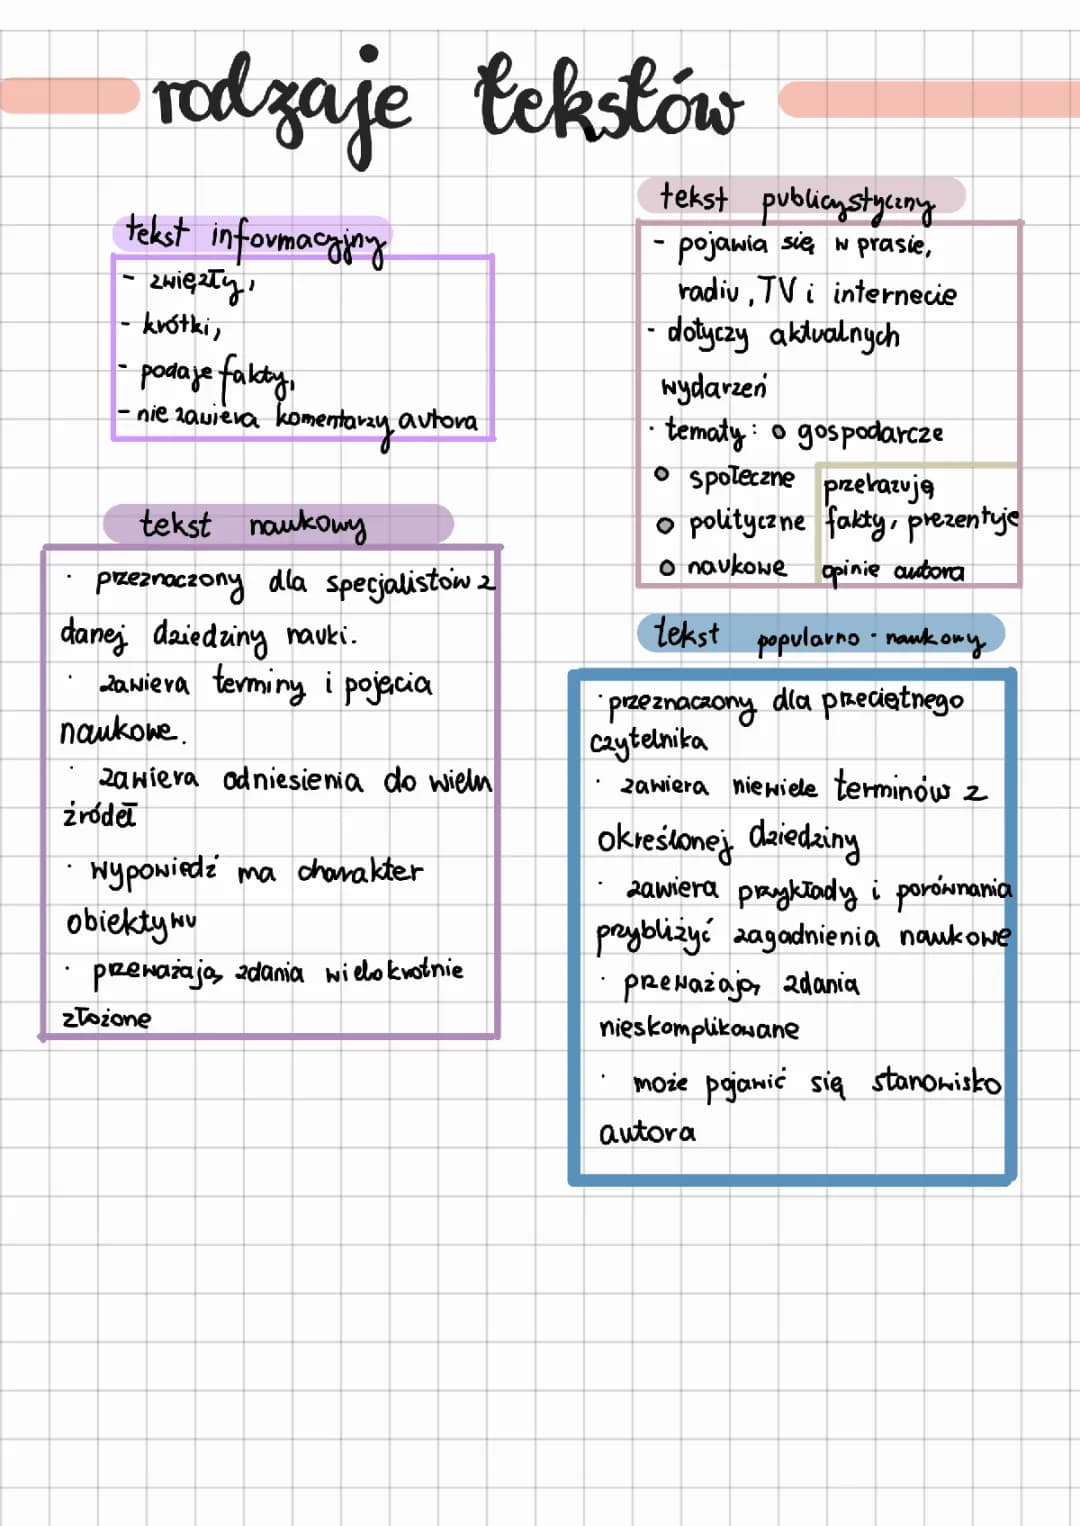 rodzaje tekstów
tekst informacyjny
- zwięzły,
- krótki,
- podaje fakty,
- nie zawiera komentarzy autora
tekst naukowy
· przeznaczony dla specjalistów z
danej dziedziny nauki.
· zawiera terminy i pojęcia
naukowe.
· zawiera odniesienia do wielu
źródeł
· wypowiedź ma charakter
obiektywu
· przeważają zdania wielokrotnie
złożone
tekst publicystyczny
- pojawia się w prasie,
radiu, TV i internecie
- dotyczy aktualnych
wydarzeń
· tematy: o gospodarcze
o społeczne
o polityczne
o naukowe
przekazuję
fakty, prezentuje
opinie autora
tekst popularno - naukowy
· przeznaczony dla przeciętnego
czytelnika
· zawiera niewiele terminów z
określonej dziedziny
· zawiera przykłady i porównania
przybliżyć zagadnienia naukowe
· przeważają zdania
nieskomplikowane
· może pojawić się stanowisko
autora